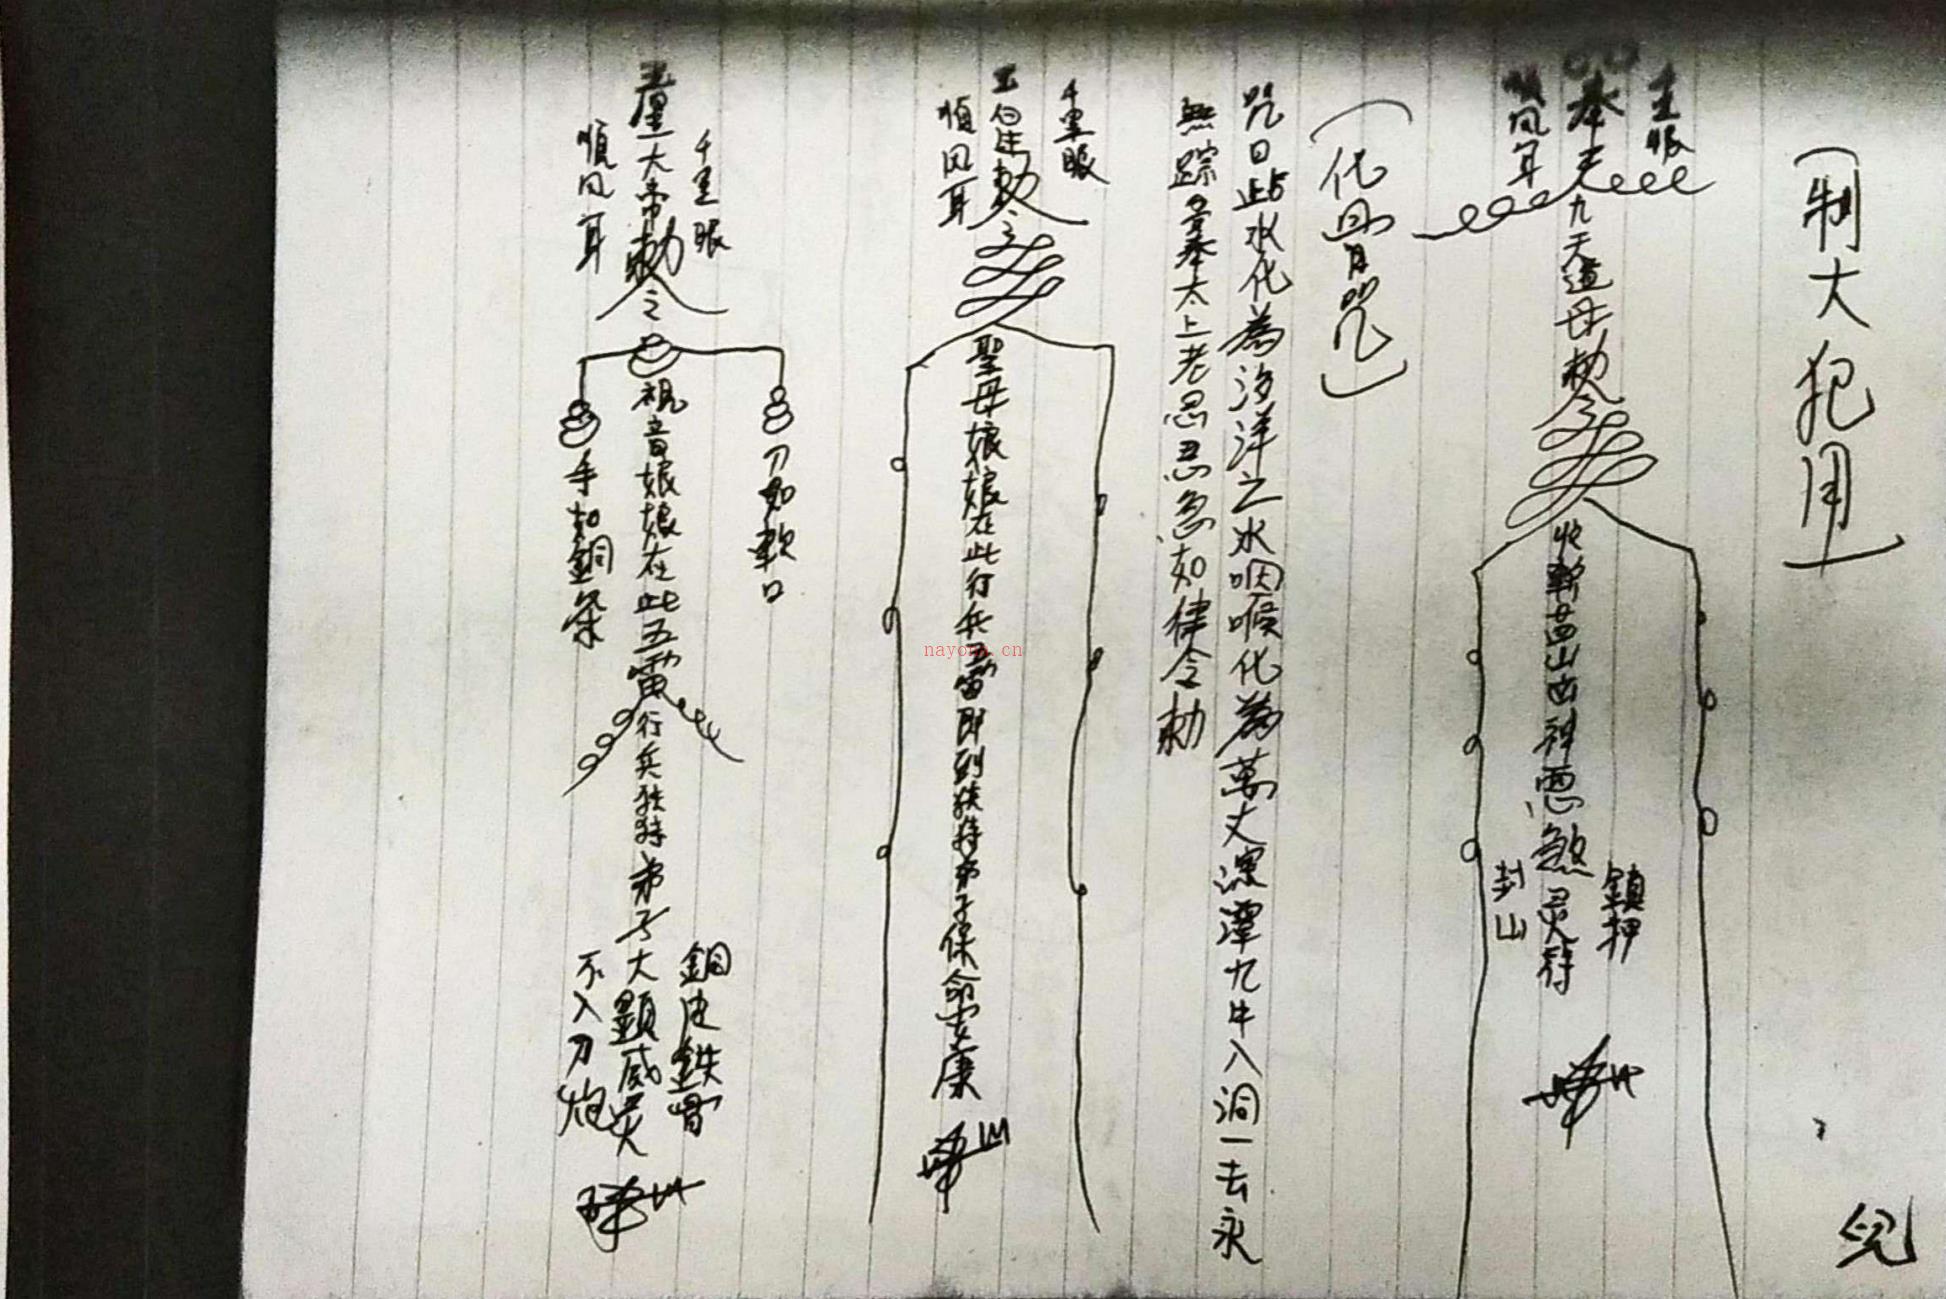 制大犯用
千里眼
奉 九天道母勅令
順风耳
收斬 山 神惡煞灵符
鎮押
封山
化骨咒
咒曰此水化為汐洋之水咽喉化為萬丈深潭九牛入洞一去永
無踪 奉太上老君 急急如律令勅
千里眼
勅令
順风耳
聖母娘娘在此行兵五雷即到扶持弟子保命安康
千里眼
大帝勅令
順风耳
刀如軟口
視音娘娘在此五雷行兵扶持弟子大顯威灵
手如銅條
銅皮鉄骨
不入刀炮
兒
nayona.cn